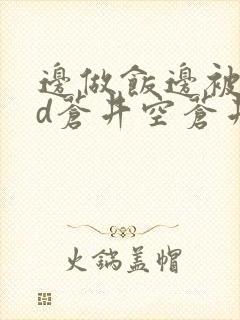 邊做飯邊被
d蒼井空蒼井
火鍋蓋帽